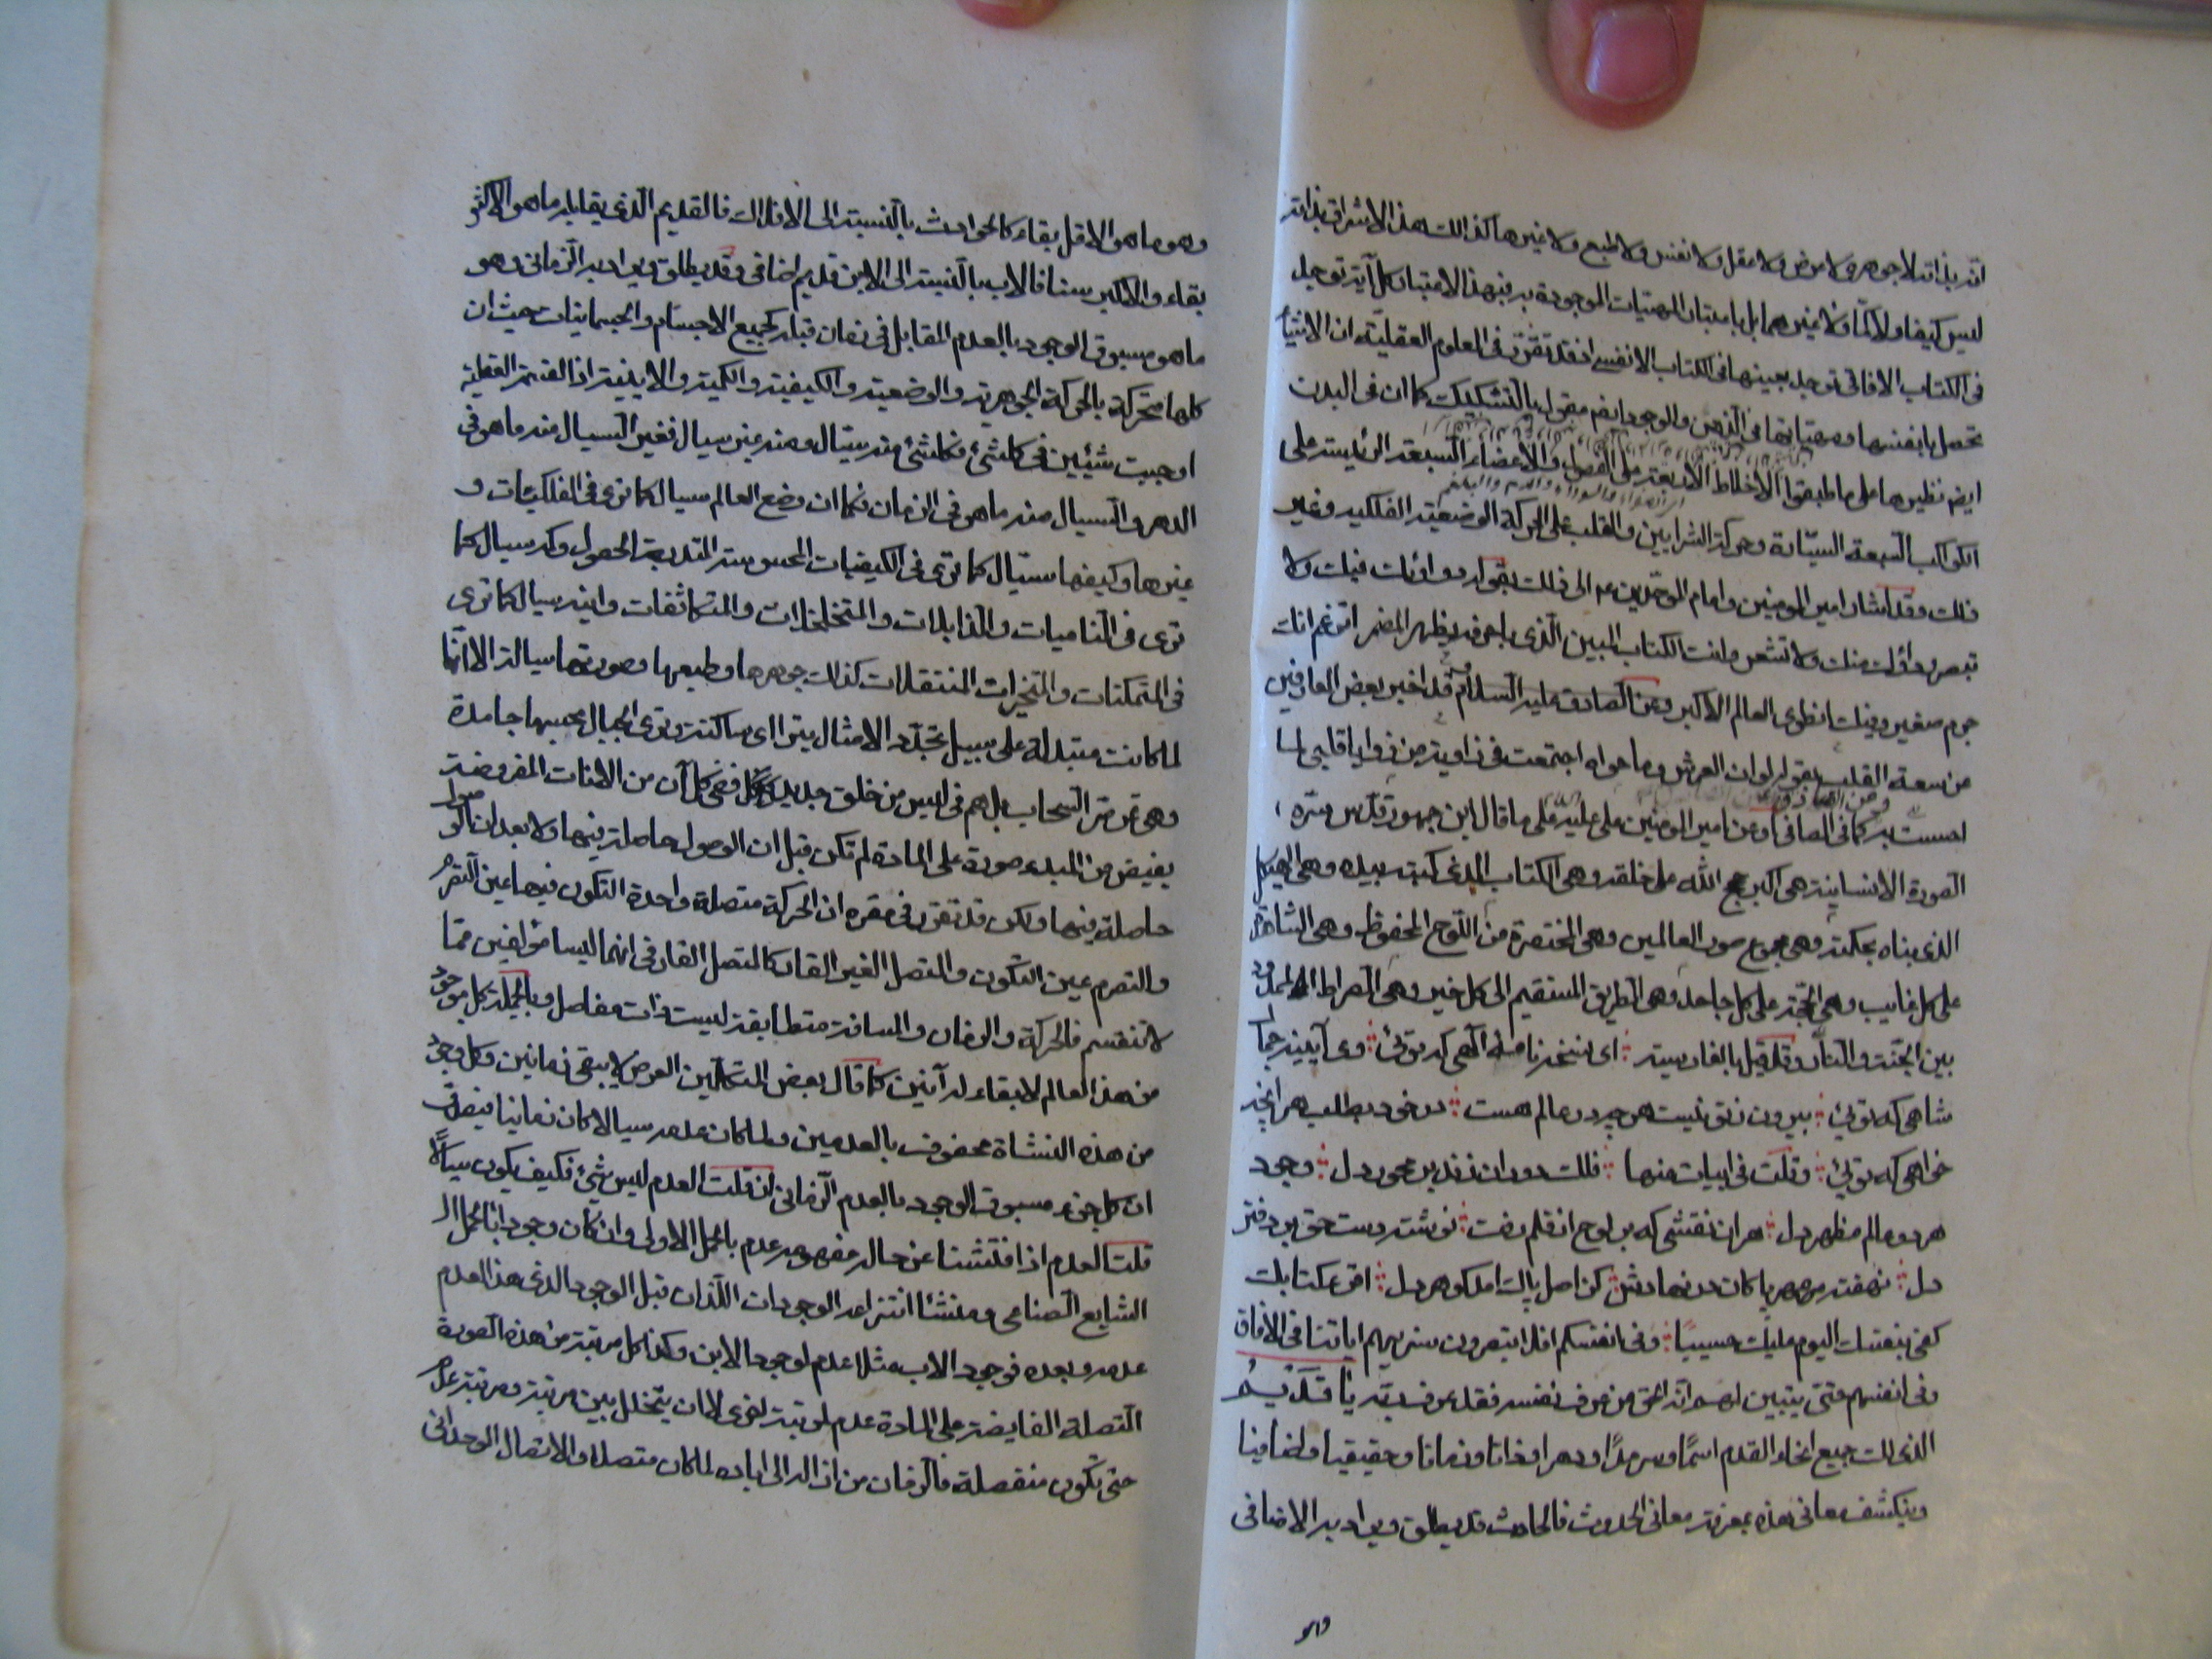 انه بذاته لا جوهر ولا عرض ولا عقل ولا نفس ولا طبع ولا غيرها كذلك هذا الاشراق بذاته
ليس كيفا ولا كما ولا غيرهما بل باعتبار المهيات الموجودة به فبهذا الاعتبار كل آية توجد
فى الكتاب الافاقى توجد بعينها فى الكتاب الانفسى اذ قد تقرر فى العلوم العقلية ان الاشياء
تحصل بانفسها ومهياتها فى الذهن والوجود ايضم مقول بالتشكيك كما ان فى البدن
ايضم نظيرها على ما طبقوا الاخلاط الاربعة على الفصول والاعضاء السبعة الرئيسة على
الكواكب السبعة السيارة وحركة الشرايين والقلب على الحركة الوضعية الفلكية وغير
ذلك وقد اشار امير المومنين وامام الموحدين عم الى ذلك بقوله دوائك فيك ولا
تبصر وداؤك منك ولا تشعر وانت الكتاب المبين الذى باحرفه يظهر المضمر اتزعم انك
جرم صغير وفيك انطوى العالم الاكبر وعن الصادق عليه السلام قد اخبر بعض العارفين
عن سعة القلب بقوله لو ان العرش وما حواه اجتمعت فى زاوية من زوايا قلبى لما
احسست به كما فى الصافى وعن امير المومنين على عليه على ما قال ابن جمهور قدس سره
الصورة الانسانية هى اكبر حجج الله على خلقه وهى الكتاب الذى كتبه بيده وهى الهيكل
الذى بناه بحكمته وهى مجموع صور العالمين وهى المختصرة من اللوح المحفوظ وهى الشاهدة
على كل غايب وهى الحجة على كل جاحد وهى الطريق المستقيم الى كل خير وهى الصراط الممدود
بين الجنة والنار وقد قيل بالفارسية اى نسخه نامه الهى كه توئى وى آيينه جمال
شاهى كه توئى بيرون ز تو نيست هر چه در عالم هست در خود بطلب هر انچه
خواهى كه توئى وقلت فى ابيات منها فلك دوران زند بر محور دل وجود
هر دو عالم مظهر دل هر ان نقشى كه بر لوح از قلم رفت نوشته دست حق بر دفتر
دل نهفته مهر پاكان در نهادش كز اصل پاك امد گوهر دل اقرء كتابك
كفى بنفسك اليوم عليك حسيبا وفى انفسكم افلا تبصرون سنريهم اياتنا فى الافاق
وفى انفسهم حتى يتبين لهم انه الحق من عرف نفسه فقد عرف ربه يا قديم
الذى لك جميع انحاء القدم اسما وسرمدا ودهرا وذاتا وزمانا وحقيقيا واضافيا
وينكشف معانى هذه بمعرفة معانى الحدوث فالحادث قد يطلق ويراد به الاضافى
وهو
وهو ما هو الاقل بقاء كالحوادث بالنسبة الى الافلاك فالقديم الذى يقابله ما هو الاكثر
بقاء والاكبر سنا فالاب بالنسبة الى الابن قديم اضافى وقد يطلق ويراد به الزمانى وهو
ما هو مسبوق الوجود بالعدم المقابل فى زمان قبله كجميع الاجسام والجسمانيات حيث ان
كلها متحركة بالحركة الجوهرية والوضعية والكيفية والكمية والاينية اذ القسمة العقلية
اوجبت شيئين فى كل شئ فكل شئ منه سيال ومنه غير سيال فغير السيال منه ما هو فى
الدهر والسيال منه ما هو فى الزمان فكما ان وضع العالم سيال كما ترى فى الفلكيات و
غيرها وكيفها سيال كما ترى فى الكيفيات المحسوسة التدريجية الحصول وكمه سيال كما
ترى فى الناميات والذابلات والمتخلخلات والمتكاثفات واينه سيال كما ترى
فى المتمكنات والمتحيزات المنتقلات كذلك جوهرها وطبعها وصورتها سيالة الا انها
لما كانت متبدلة على سبيل تجدد الامثال يترااى ساكنة وترى الجبال تحسبها جامدة
وهى تمر مر السحاب بل هم فى لبس من خلق جديد ففى كل آن من الانات المفروضة
يفيض من المبدء صورة على المادة لم تكن قبل ان الوصول حاصلة فيها ولا بعد ان الوصول
حاصلة فيها ولكن قد تقرر فى مقره ان الحركة متصلة واحدة التكون فيها عين التصرم
والتصرم عين التكون والمتصل الغير القار كالمتصل القار فى انهما ليسا مؤلفين مما
لا تنقسم فالحركة والزمان والمسافة متطابقة ليست ذات مفاصل وبالجملة كل موجود
من هذا العالم لا بقاء له آنين كما قال بعض المتكلمين العرض لا يبقى زمانين وكل وجود
من هذه النشاة محفوف بالعدمين ولما كان عدمه سيالا كان زمانيا فيصدق
ان كل جزء مسبوق الوجود بالعدم الزمانى ان قلت العدم ليس شئ فكيف يكون سيالا
قلت العدم اذا فتشنا عن حال مفهومه عدم بالحمل الاولى وان كان وجودا بالحمل
الشايع الصناعى ومنشاء انتزاعه الوجودات اللذان قبل الوجود الذى هذا العدم
عدمه وبعده فوجود الاب مثلا عدم لوجود الابن وكذا كل مرتبة من هذه الصورة
المتصلة الفايضة على المادة عدم لمرتبة اخرى لا ان يتخلل بين مرتبة ومرتبة عدم
حتى تكون منفصلة فالزمان من ازاله الى اباده لما كان متصلا والاتصال الوحدانى